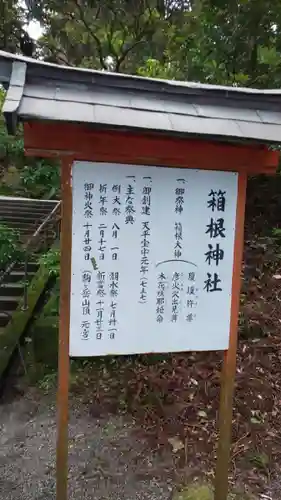 箱根神社
一、御祭神 箱根大神
瓊瓊杵尊
彦火火出見尊
木花咲耶姫命
一、御創建 天平宝字元年(七五七)
一、主な祭典
例大祭 八月一日
祈年祭 二月十七日
御神火祭 十月廿四日
湖水祭 七月卅一日
新嘗祭 十一月廿三日
(駒ヶ岳山頂 元宮)